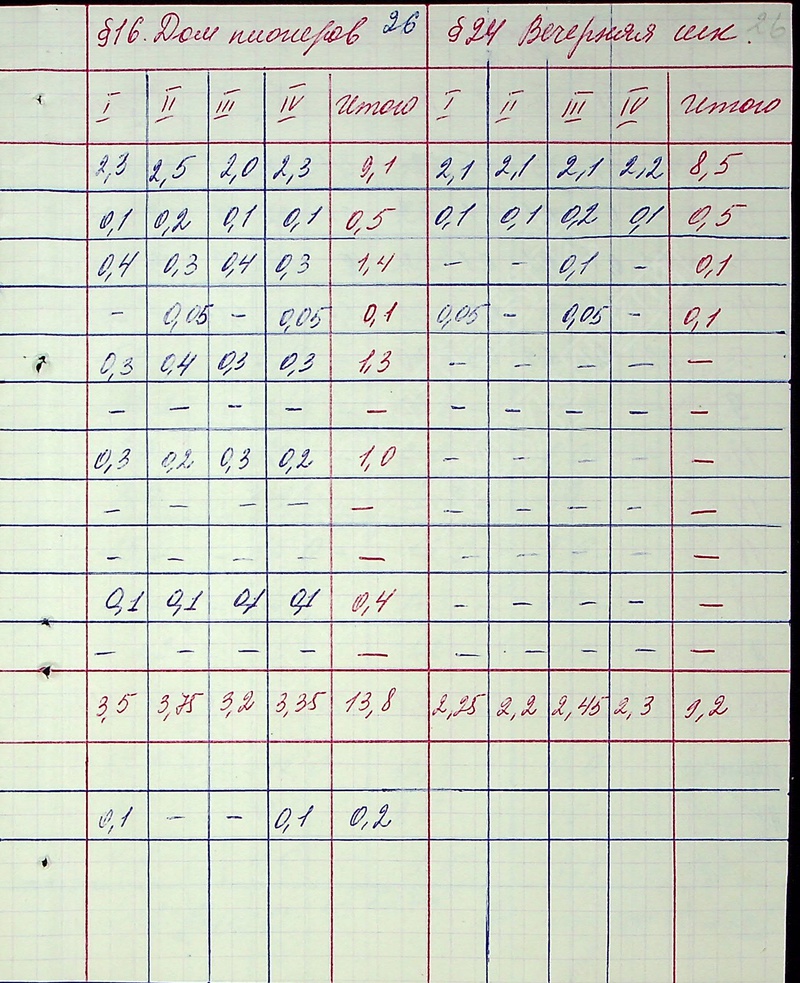 §16. Дом пионеров 26 §24 Вечерняя шк. 26
I II III IV Итого I II III IV Итого
2,3 2,5 2,0 2,3 9,1 2,1 2,1 2,1 2,2 8,5
0,1 0,2 0,1 0,1 0,5 0,1 0,1 0,2 0,1 0,5
0,4 0,3 0,4 0,3 1,4 - - 0,1 - 0,1
- 0,05 - 0,05 0,1 0,05 - 0,05 - 0,1
0,3 0,4 0,3 0,3 1,3 - - - - -
- - - - - - - - - -
0,3 0,2 0,3 0,2 1,0 - - - - -
- - - - - - - - - -
- - - - - - - - - -
0,1 0,1 0,1 0,1 0,4 - - - - -
- - - - - - - - - -
3,5 3,75 3,2 3,35 13,8 2,25 2,2 2,45 2,3 9,2
0,1 - - 0,1 0,2